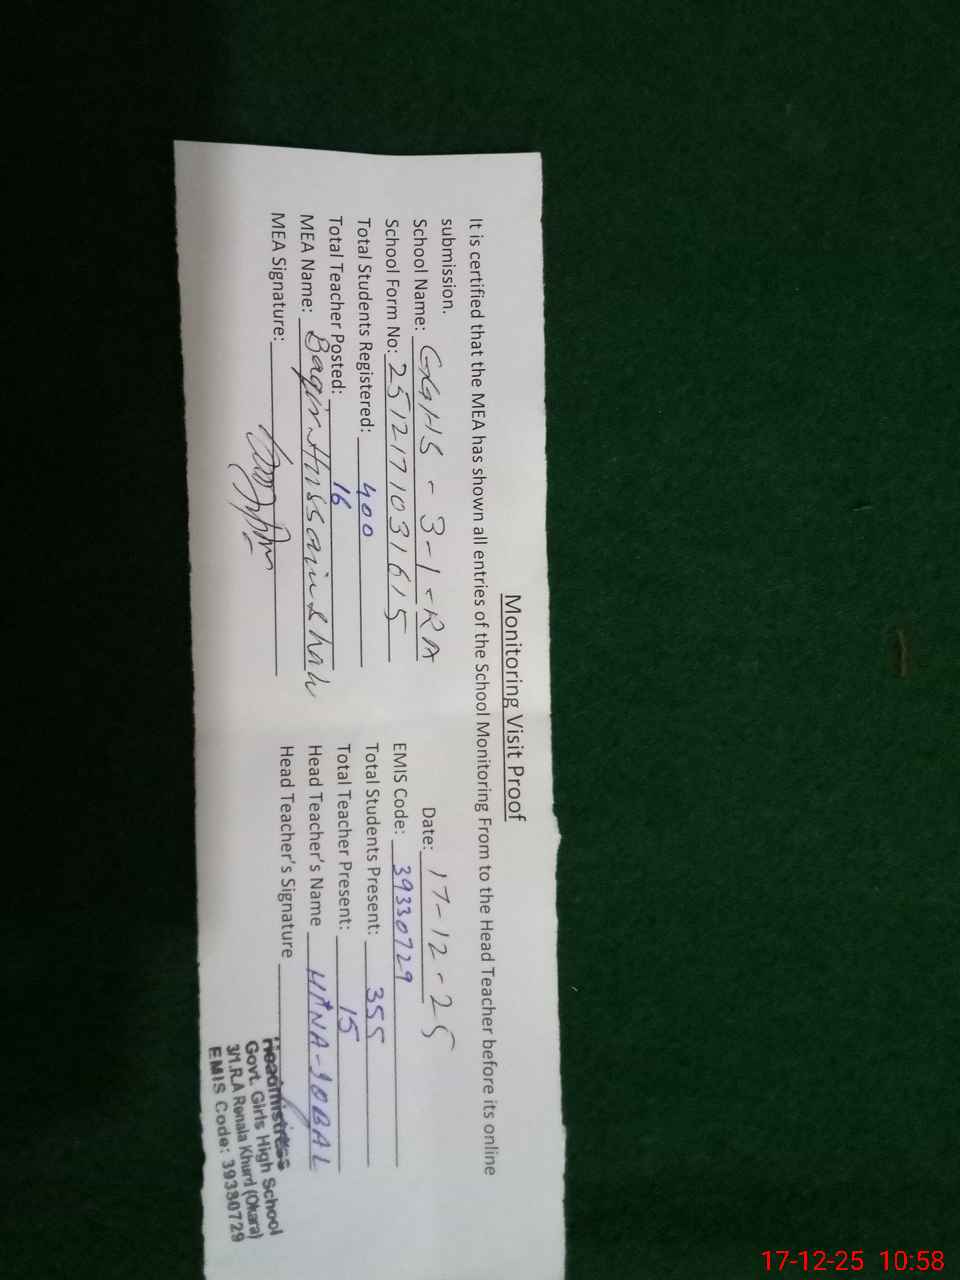 Monitoring Visit Proof
It is certified that the MEA has shown all entries of the School Monitoring From to the Head Teacher before its online
submission.
Date: 17-12-25
School Name: GGHS - 3-1-RA
School Form No: 2512171031615
EMIS Code: 39330729
Total Students Registered: 400
Total Students Present: 355
Total Teacher Posted: 16
Total Teacher Present: 15
MEA Name: Baqir Hussain Shah
Head Teacher's Name HINA-IQBAL
MEA Signature:
Head Teacher's Signature
Headmistress
Govt. Girls High School
3/1.R.A Renala Khurd (Okara)
EMIS Code: 39330729
17-12-25 10:58